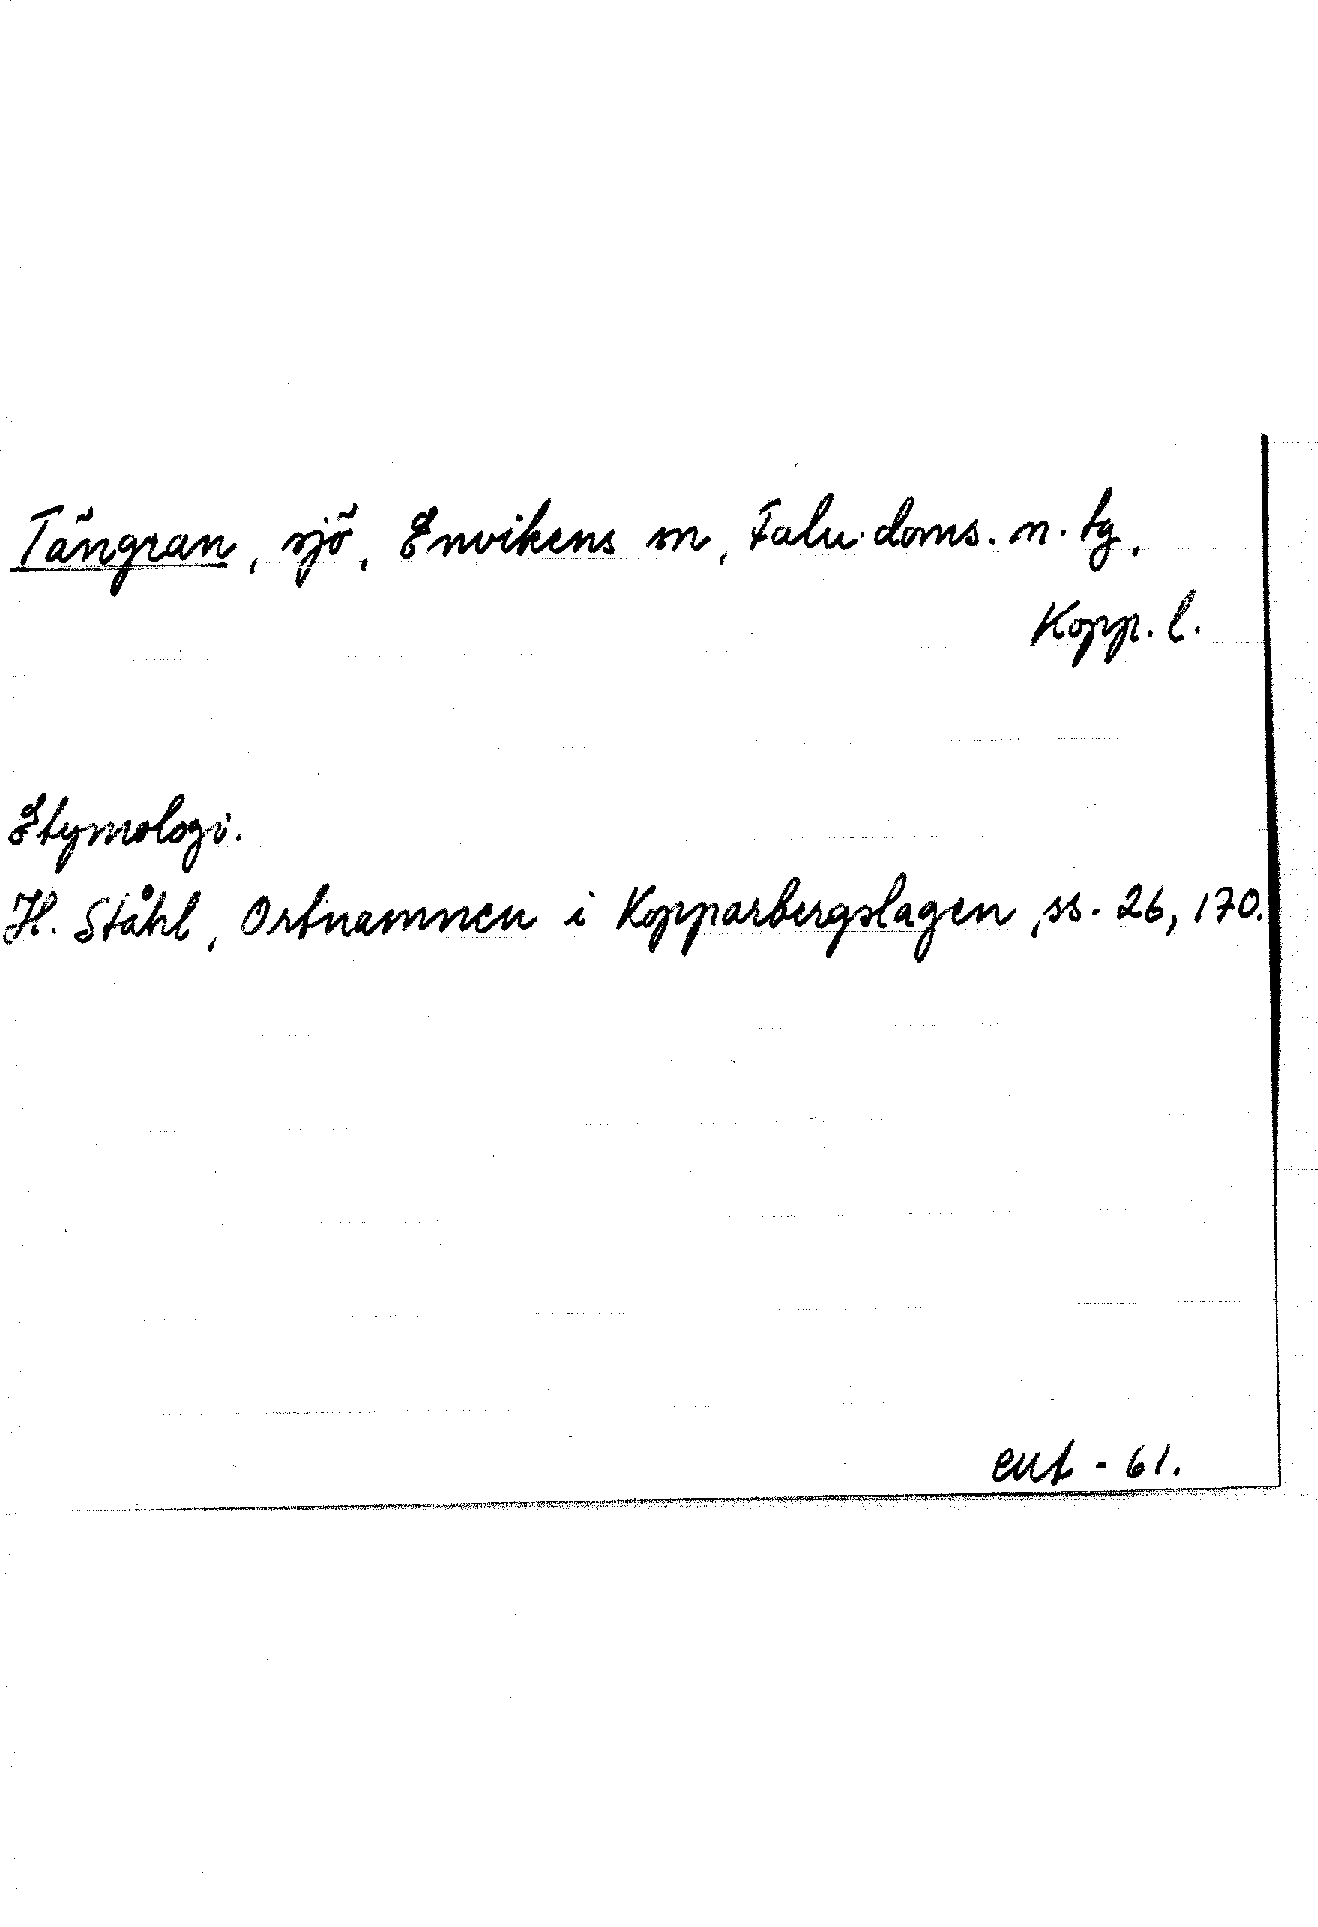 Tängran, sjö, Envikens sn, Falu doms. n. tg,
Kopp. l.
Etymologi.
H. Ståhl, Ortnamnen i Kopparbergslagen, ss. 26, 170.
- 61.